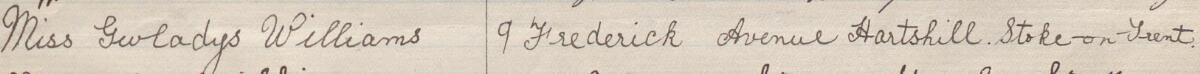 Miss Gwladys Williams 9 Frederick Avenue Hartshill. Stoke-on-Trent.